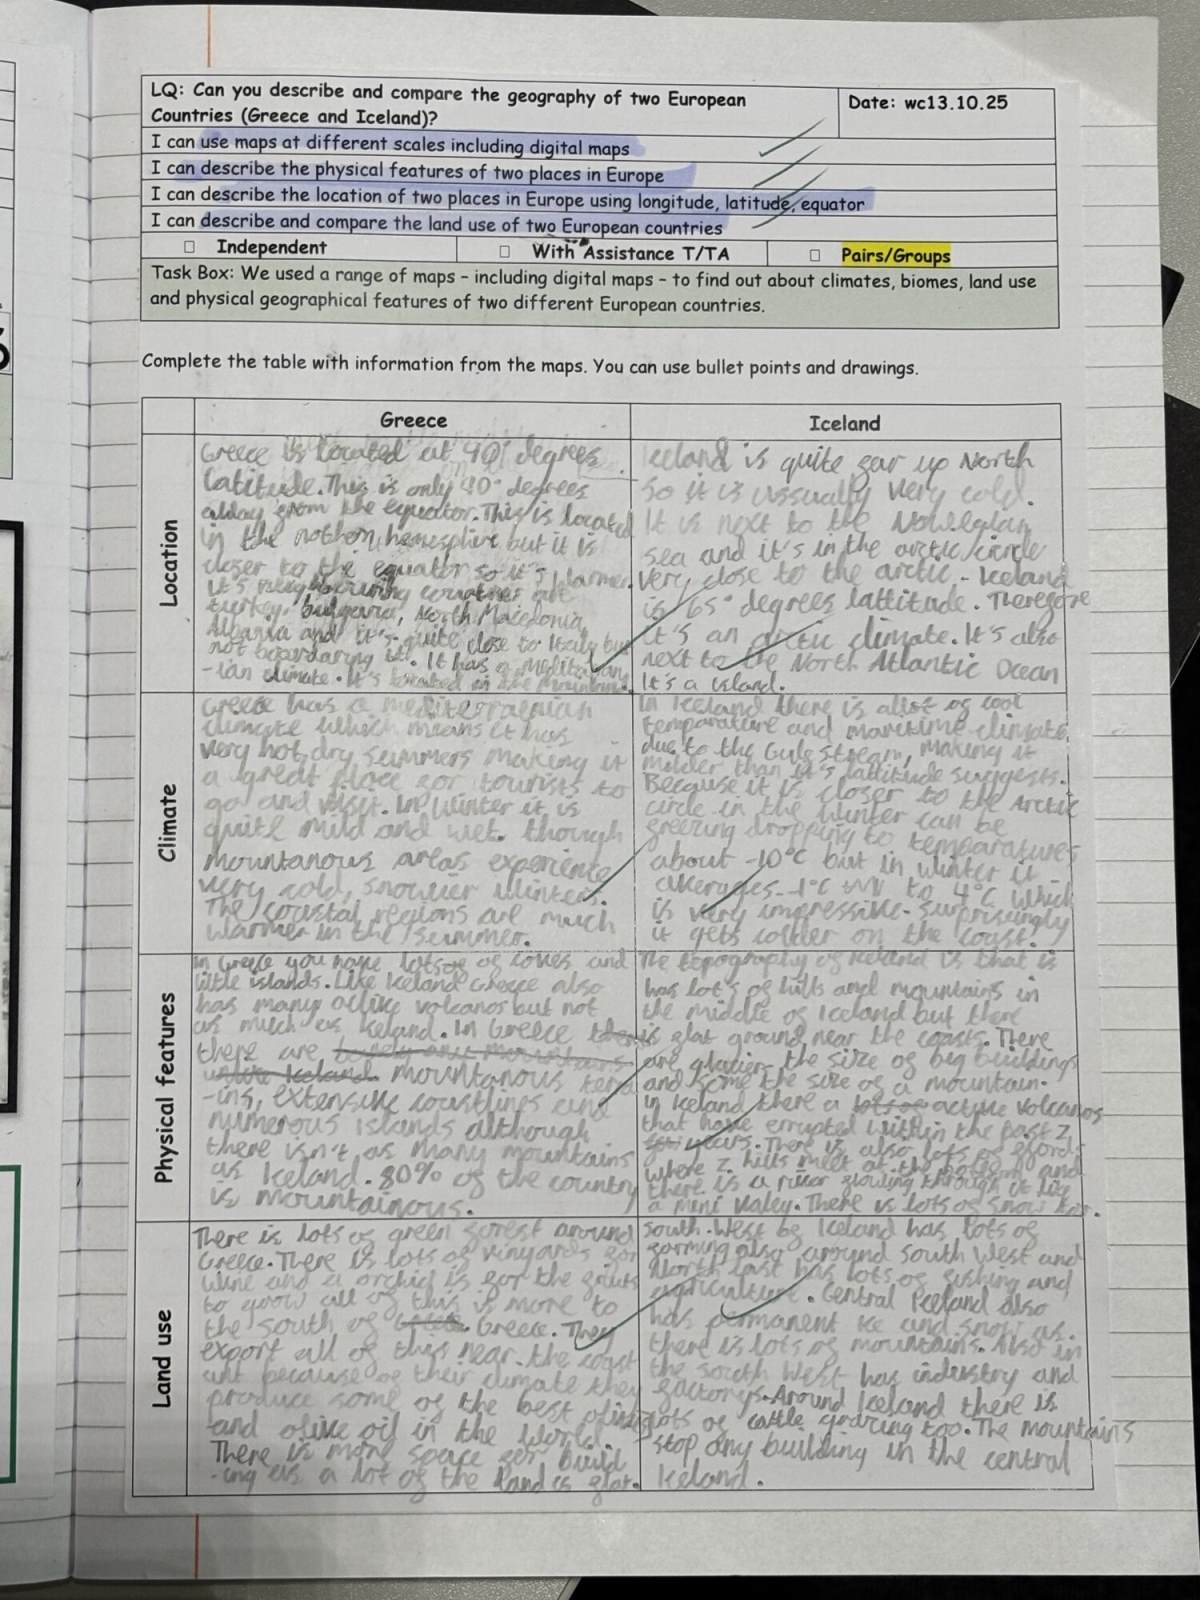 LQ: Can you describe and compare the geography of two European
Countries (Greece and Iceland)?
Date: wc13.10.25
I can use maps at different scales including digital maps
I can describe the physical features of two places in Europe
I can describe the location of two places in Europe using longitude, latitude, equator
I can describe and compare the land use of two European countries
Independent
With Assistance T/TA
Pairs/Groups
Task Box: We used a range of maps – including digital maps – to find out about climates, biomes, land use
and physical geographical features of two different European countries.
Complete the table with information from the maps. You can use bullet points and drawings.
Greece
Iceland
Location
Greece is located at 40° degrees
latitude. This is only 40° degrees
away from the equator. This is located
in the nothern hemesphire but it is
closer to the equator so it's warmer.
It's neighbouring countries are
turkey, bulgaria, North Macedonia
Albania and it's quite close to Italy but
not boardaring it. It has a Meditaran
-ian climate. It's located in the
Iceland is quite far up North
so it is ussually very cold.
It is next to the Nowegian
sea and it's in the arctic circle
very close to the arctic. Iceland
is 65° degrees lattitude. Therefore
it's an arctic climate. It's also
next to the North Atlantic Ocean
It's a island.
Climate
Greece has a mediteraenian
climate which means it has
very hot, dry summers making it
a great place for tourists to
go and visit. In winter it is
quite mild and wet. though
mountanous areas experience
very cold, snowier winters.
The coastal regions are much
warmer in the summer.
In Iceland there is allot of cool
temparature and maritime climate
due to the Gulf stream, making it
milder than it's lattitude suggests.
Because it is closer to the Arctic
circle in the winter can be
freezing dropping to temparatures
about -10°C but in winter it
averages -1°C to 4°C which
is very impressive. Surprisingly
it gets colder on the coast!
Physical features
In Greece you have lots of coves and
little islands. Like Iceland Greece also
has many active volcanos but not
as much as Iceland. In Greece
there are
mountanous terra
-ins, extensive coastlines and
numerous islands although
there isn't as many mountains
as Iceland. 80% of the country
is mountainous.
The topography of Iceland is that is
has lot's of hills and mountains in
the middle of Iceland but there
is flat ground near the coasts. There
are glaciers the size of big buildings
and some the size of a mountain.
In Iceland there a active volcanos
that have errupted within the past 2
years. There is also lots of fjords
where 2 hills meet at the bottom and
there is a river flowing through it like
a mini valey. There is lots of snow
Land use
There is lots of green forest around
Greece. There is lots of vinyards for
wine and a orchid is for the fruits
to grow all of this is more to
the south of Greece. They
export all of this near the coast
and because of their climate they
produce some of the best olives
and olive oil in the world.
There is more space for build
-ing as a lot of the land is flat.
South-West of Iceland has lots of
farming also around South West and
North East has lots of fishing and
agriculture. Central Iceland also
has permanent ice and snow as
there is lots of mountains. Also in
the south West has industry and
factorys. Around Iceland there is
lots of cattle grazing too. The mountains
stop any building in the central
Iceland.